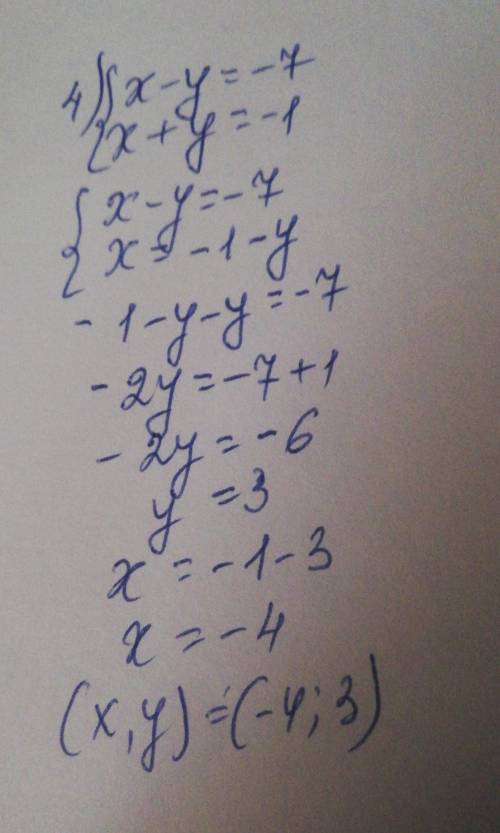 4) { x - y = -7
{ x + y = -1
{ x - y = -7
{ x = -1 - y
- 1 - y - y = -7
- 2y = -7 + 1
- 2y = -6
y = 3
x = -1 - 3
x = -4
(x, y) = (-4; 3)